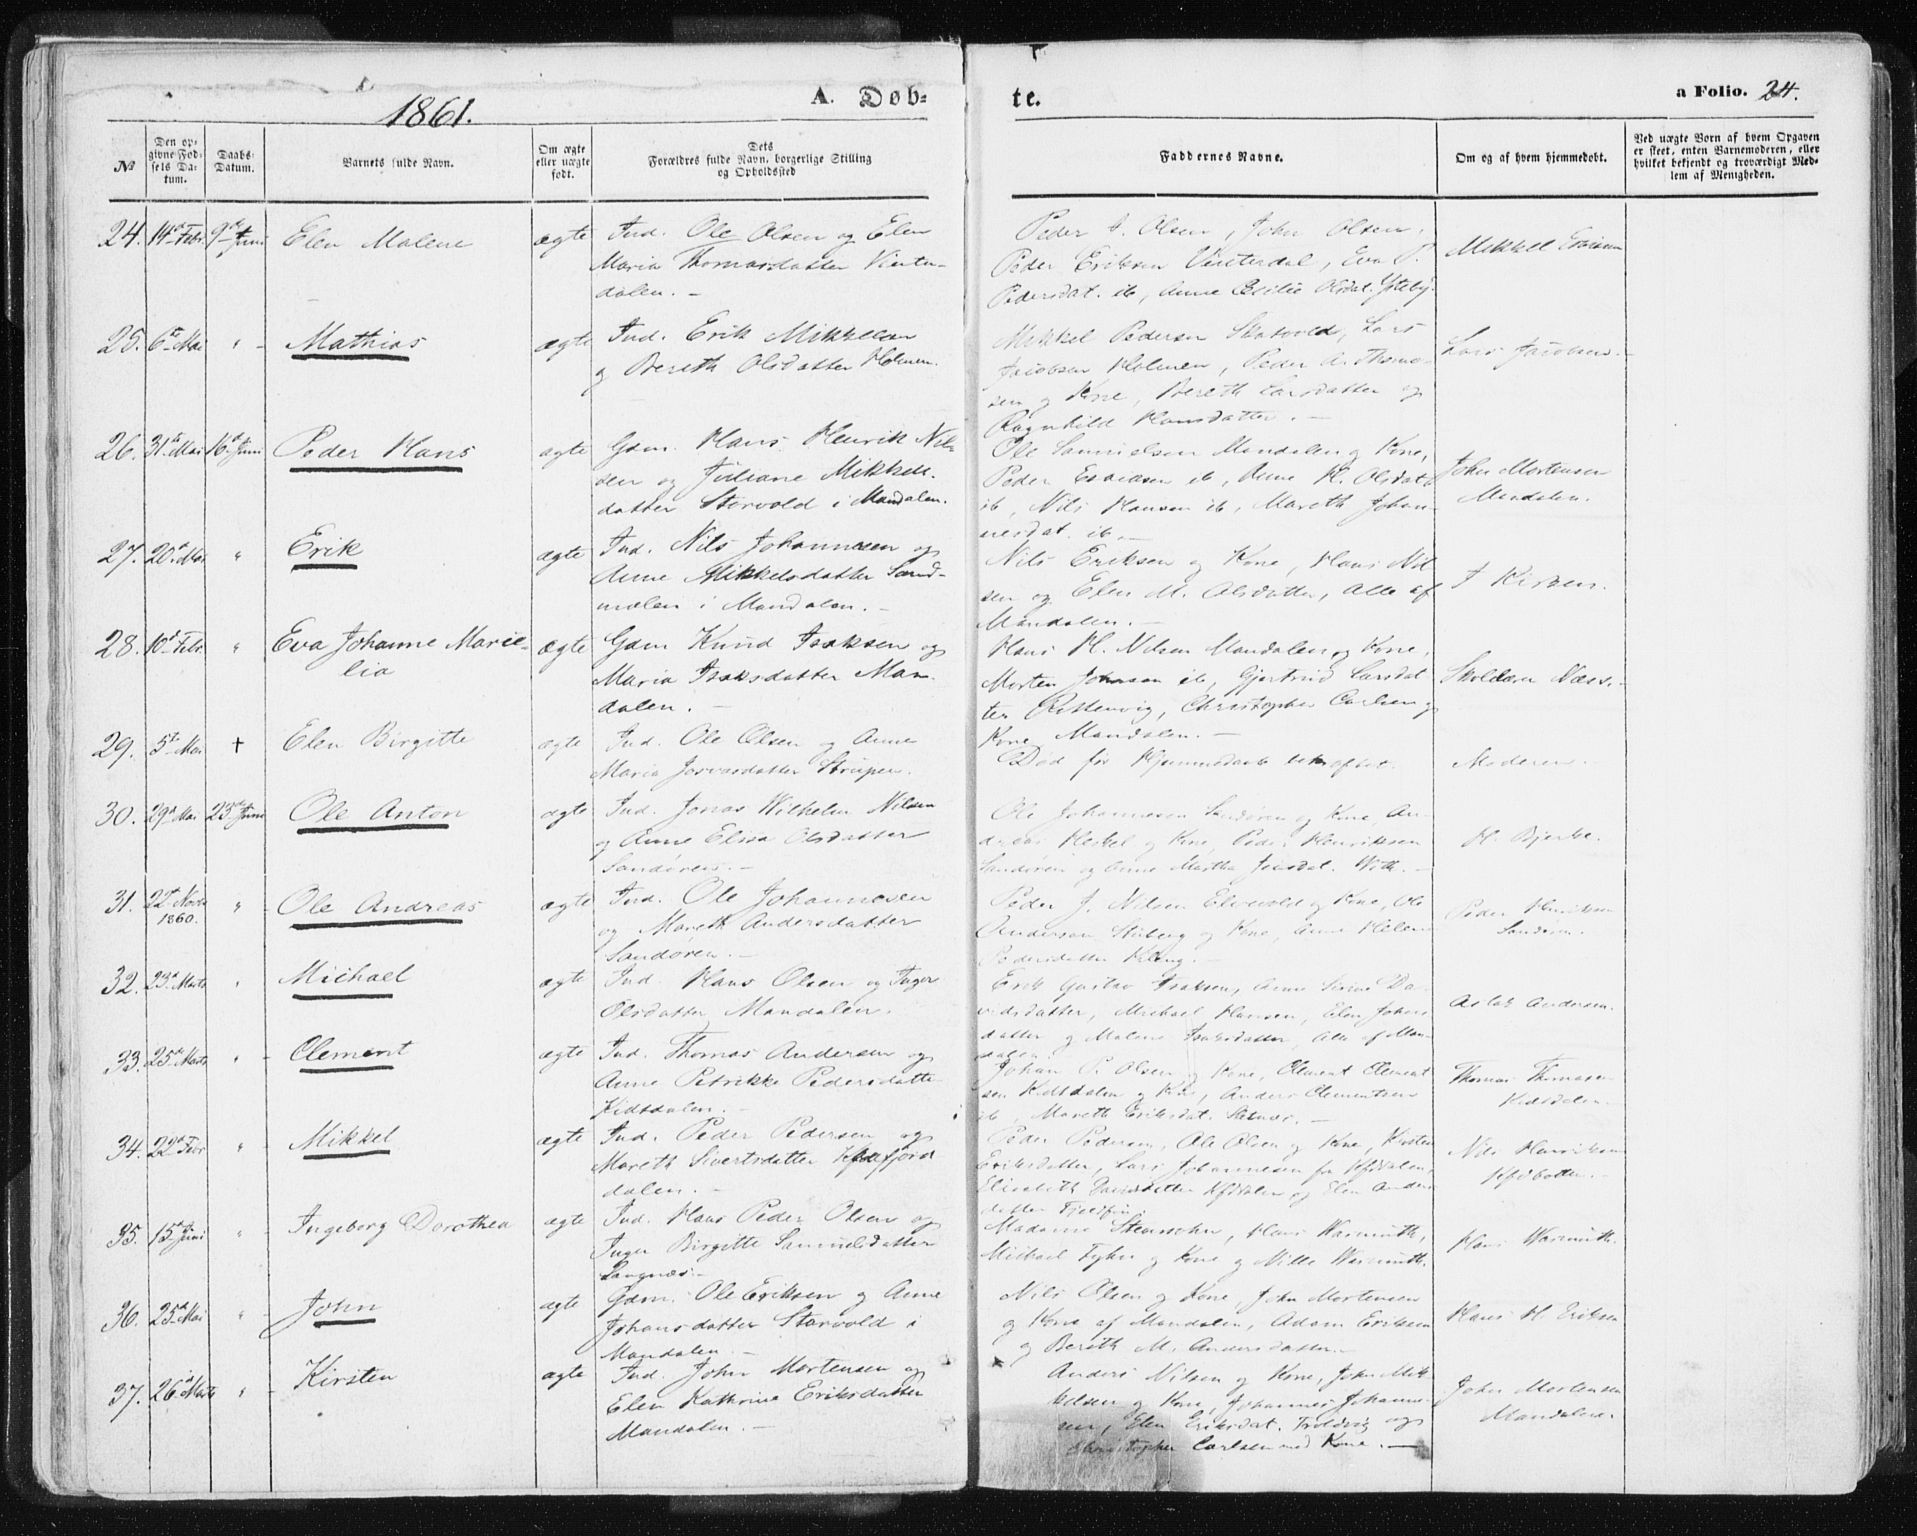 1861.
A. Døb=
te.
a Folio. 24.
No
Den op=
givne Fød=
sels Da=
tum.
Daabs
Datum.
Barnets fulde Navn.
Om ægte
eller uægte
født.
Dets
Forældres fulde Navn, borgerlige Stilling
og Opholdssted
Faddernes Navne.
Om og af hvem hjemmedøbt.
Ved uægte Børn af hvem Opgaven
er skeet, enten Barnemoderen, eller
hvilket bekjendt og troværdigt Med=
lem af Menigheden.
24. 14d Febr. 9d Juni Elen Malene ægte Ind. Ole Olsen og Elen
Maria Thomasdatter
dalen. -
Peder Olsen, John Olsen,
Peder Eriksen Vinterdal, Eva P.
Pedersdat. ib, Anne Olsdat.
Mikkel
25. 6te Mai " - Mathias ægte Ind. Erik Mikkelsen
og Bereth Olsdatter Holmen.
Mikkel Pedersen Skatvold, Lars
Jacobsen Holmen, Peder A. Thoma-
sen og Kone, Bereth Larsdatter og
Ragnhild Hansdatter. -
Lars Jacobsen. -
26. 31te Mai 16d Juni Peder Hans ægte Gdm. Hans Henrik Nil-
sen og Juliane Mikkels.
datter Storvold i Mandalen.
Ole Samuelsen Mandalen og Kone,
Peder Esaiasen ib, Anne K. Olsdat.
ib, Nils Hansen ib, Mareth Johan-
nesdat. ib. -
John Mortensen
Mandalen.
27. 20d Mai " Erik ægte Ind. Nils Johannesen og
Anne Mikkelsdatter Sand-
mælen i Mandalen. -
Nils Eriksen og Kone, Hans Nil
sen og Elen M. Olsdatter, Alle af
Mandalen. -
28. 10d Febr. " Eva Johanne Marie-
lia ægte Gdm Knud Isaksen og
Maria Isaksdatter Man
dalen. -
Hans H. Nilsen Mandalen og Kone,
Morten Johnsen ib, Gjertrud Larsdat
ter Rottenvig, Christopher Carlsen og
Kone Mandalen. -
Skolelærer Næss. -
29. 5te Mai † Elen Birgitte ægte Ind. Ole Olsen og Anne
Maria datter Strupen.
Død før Hjemmedaab bekræftet.
Moderen. -
30. 29d Mai 23d Juni Ole Anton ægte Ind. Jonas Wilhelm Nilsen
og Anne Elisa Olsdatter
Sandøren. -
Ole Johannesen Sandøren og Kone, An-
dreas Heskel og Kone, Peder Henriksen
Sandøren og Anne Martha
H. Bjerke.
31. 22d Novbr
1860. " - Ole Andreas ægte Ind. Ole Johannesen
og Mareth Andersdatter
Sandøren. -
Peder J. Nilsen Elvevold og Kone, Ole
Andersen og Kone, Anne Helene
Pedersdatter
Peder Henriksen
Sandøren.
32. 23d Marts " Michael ægte Ind. Hans Olsen og Inger
Olsdatter Mandalen.
Erik Gustav Isaksen, Anne Da-
vidsdatter, Michael Hansen, Elen Johns
datter og Malene Isaksdatter, Alle af Man-
dalen.
Aslak Andersen.
33. 25d Marts " - Clement ægte Ind. Thomas Andersen og
Anne Petrikke Pedersdatte
Kidsdalen. -
Johan P. Olsen og Kone, Clement Clement
sen Kidsdalen og Kone, Anders Clementsen
ib, Mareth Eriksdat.
Thomas Thomasen
Kidsdalen.
34. 22d Febr " - Mikkel ægte Ind. Peder Pedersen og
Mareth Sivertsdatter Kaafjord
dalen. -
Peder Pedersen, Ole Olsen og Kone, Kirsten
Eriksdatter, Lars Johannesen fra Kfjdalen,
Elisabeth Kfjdalen og Elen Anders
datter
Nils Henriksen
Kfjdbotten. -
35. 15d Juni " - Ingeborg Dorothea ægte Ind. Hans Peder Olsen og
Inger Birgitte Samuelsdatter
Langnæs. -
Madame, Hans Warmuth,
Michael og Kone og Nille Warmuth.
Hans Warmuth.
36. 25d Mai " - John ægte Gdm. Ole Eriksen og Anne
Johansdatter Storvold i
Mandalen. -
Nils Olsen og Kone, John Mortensen
og Kone af Mandalen, Adam Eriksen
og Bereth M. Andersdatter. -
Hans H. Eriksen
37. 26d Marts " - Kirsten ægte Ind. John Mortensen og
Elen Kathrine Eriksdatter
Mandalen. -
Anders Nilsen og Kone, John Mik
kelsen og Kone, Johannes Johanne-
sen, Elen Eriksdat. Troldvig og
Christopher Carlsen med Kone. -
John Mortensen
Mandalen.